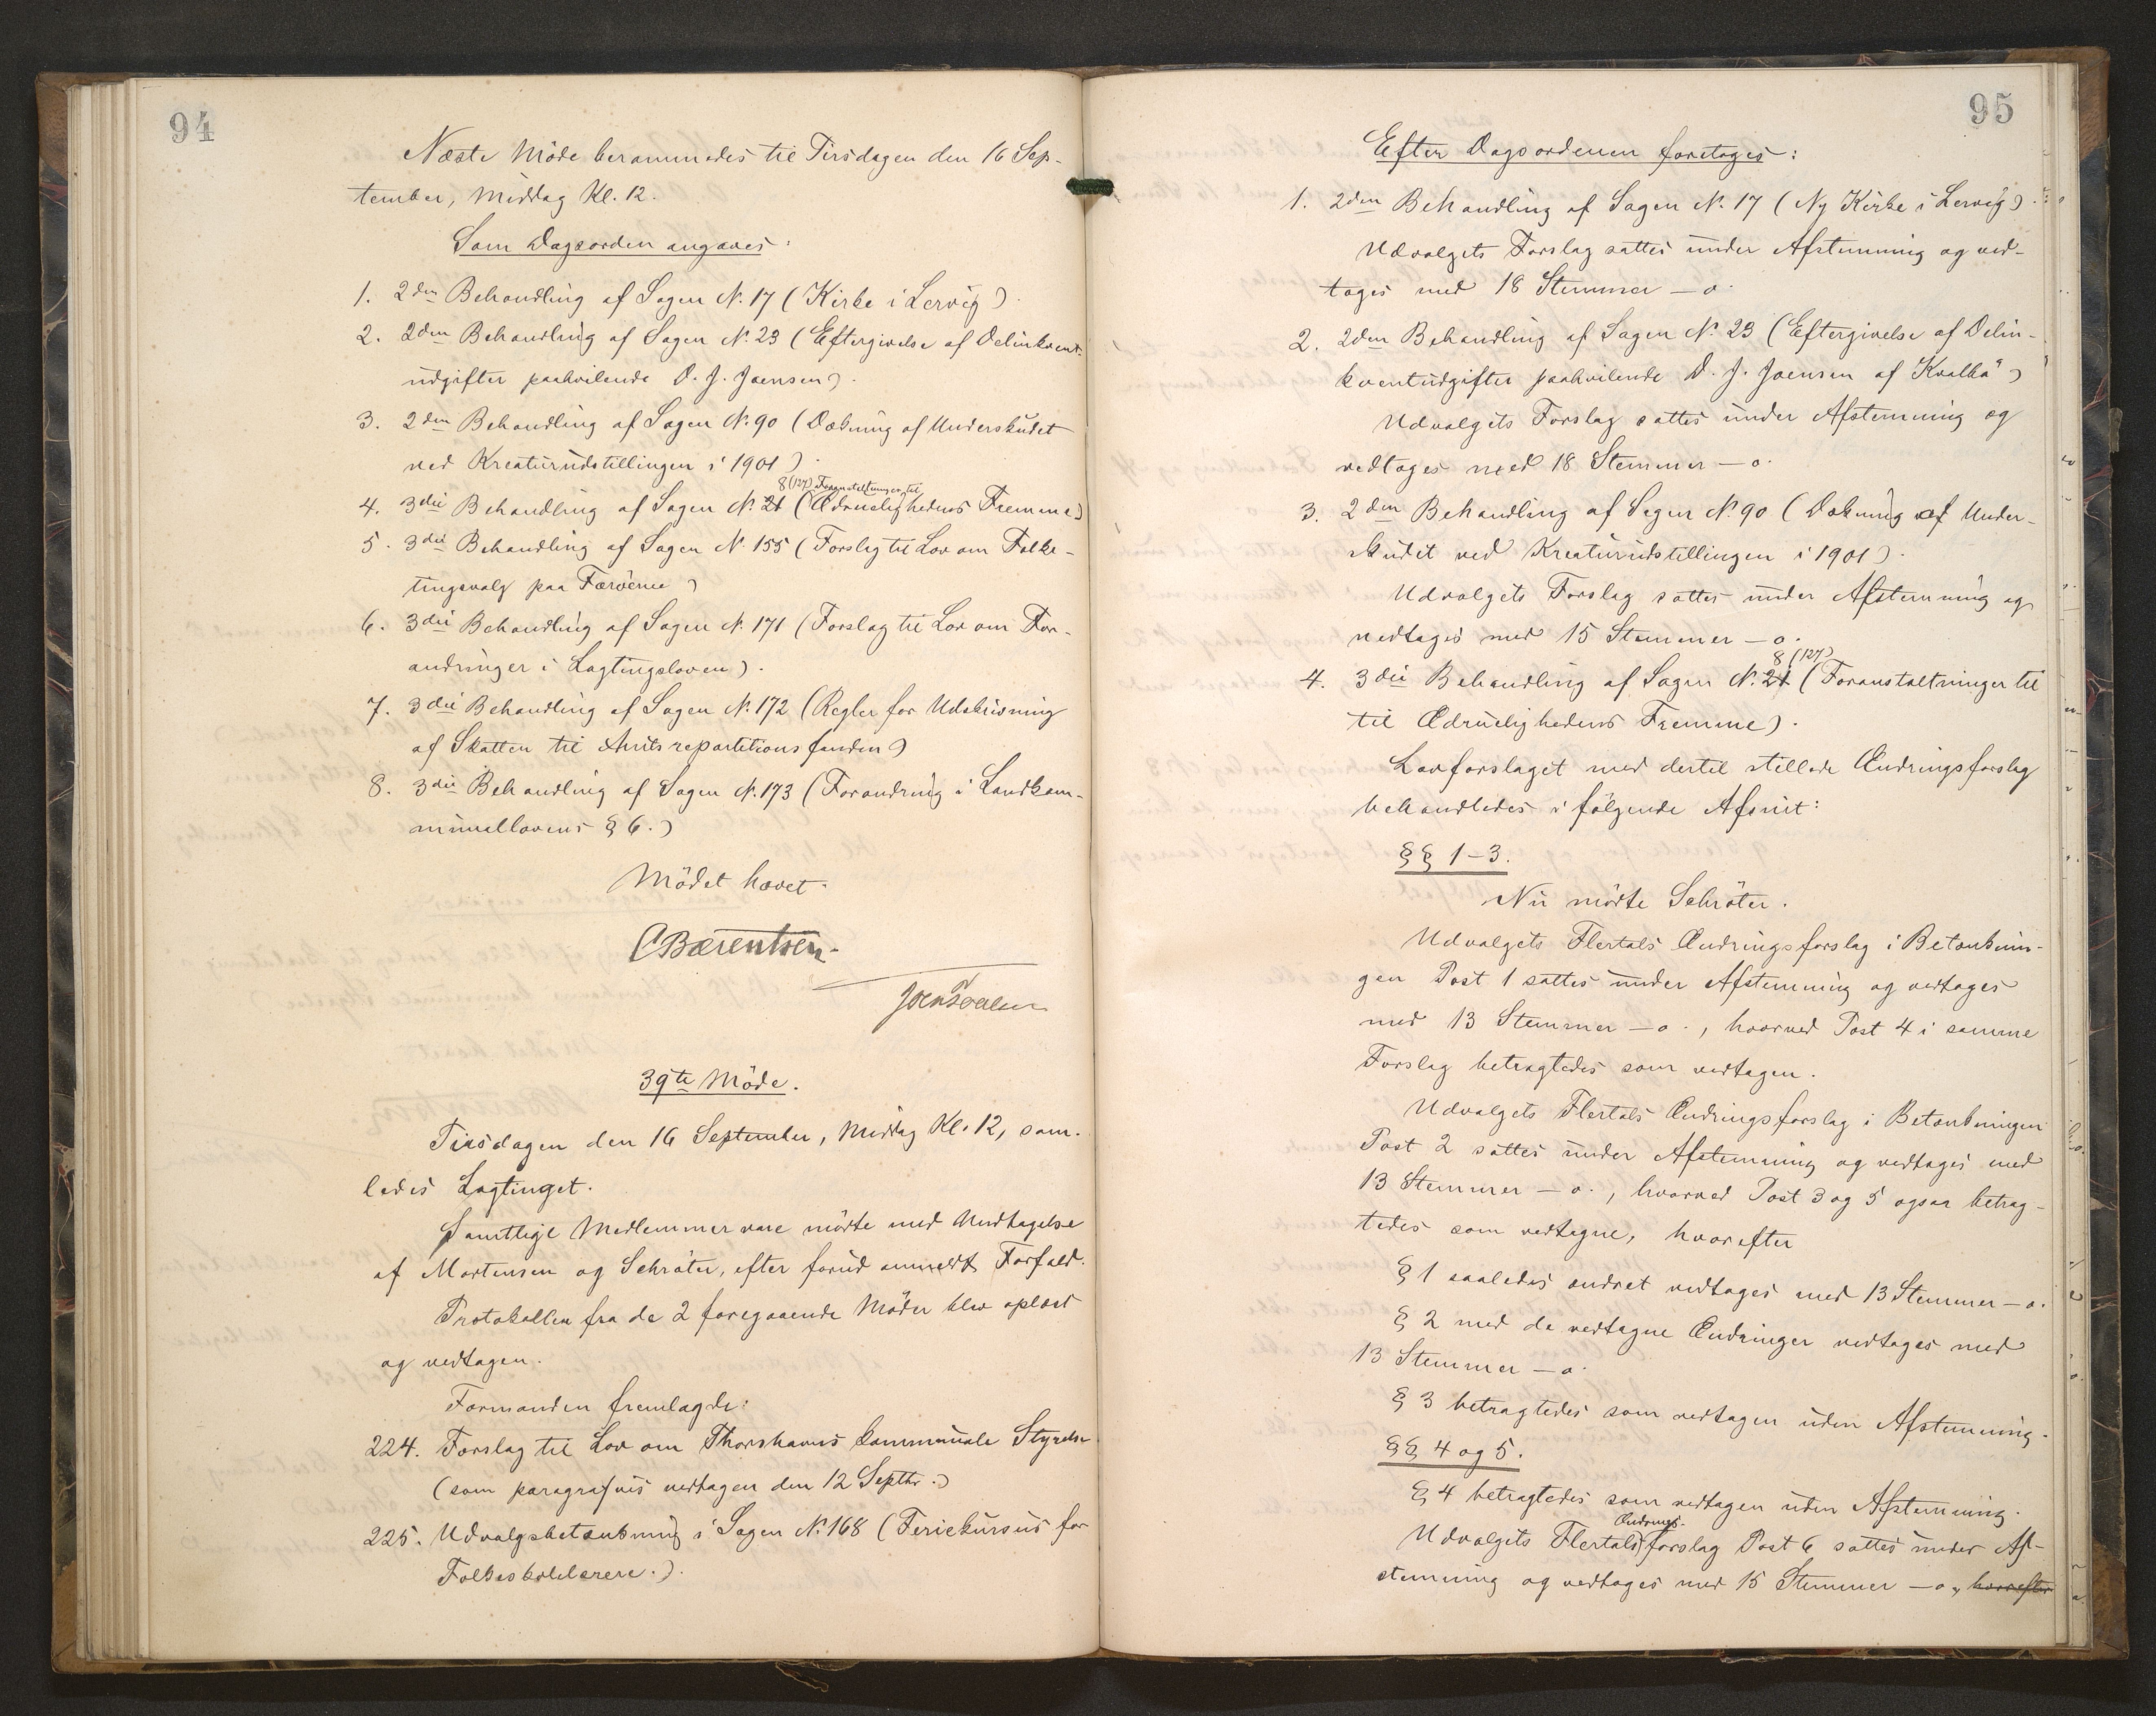 94
Næste Möde berammedes til Tirsdagen den 16 Sep-
tember, Middag Kl. 12.
Som Dagsorden angaves:
1. 2den Behandling af Sagen N. 17 (Kirke i Lervig).
2. 2den Behandling af Sagen N. 23 (Eftergivelse af Delinkvent-
udgifter paahvilende D. J. Joensen).
3. 2den Behandling af Sagen N. 90 (Dækning af Underskudet
ved Kreaturudstillingen i 1901).
8 (127) Foranstaltninger til
4. 3die Behandling af Sagen N. 21 (Ædruelighedens Fremme)
5. 3die Behandling af Sagen N. 155 (Forslag til Lov om Folke-
tingsvalg paa Færöerne)
6. 3die Behandling af Sagen N. 171 (Forslag til Lov om For-
andringer i Lagtingsloven).
7. 3die Behandling af Sagen N. 172 (Regler for Udskrivning
af Skatten til Amtsrepartitionsfonden)
8. 3die Behandling af Sagen N. 173 (Forandring i Landkom-
munallovens § 6.)
Mödet hævet.
CBærentsen.
Joen Poulsen
39te Möde.
Tirsdagen den 16 September, Middag Kl. 12, sam-
ledes Lagtinget.
Samtlige Medlemmer vare mödte med Undtagelse
af Mortensen og Schröter, efter forud anmeldt Forfald.
Protokollen fra de 2 foregaaende Möder blev oplæst
og vedtagen.
Formanden fremlagde:
224. Forslag til Lov om Thorshavns kommunale Styrelse
(som paragrafvis vedtagen den 12 Septbr.)
225. Udvalgsbetænkning i Sagen N. 168 (Feriekursus for
Folkeskolelærere.).
95
Efter Dagsordenen foretoges:
1. 2den Behandling af Sagen N. 17 (Ny Kirke i Lervig).
Udvalgets Forslag sattes under Afstemning og ved-
toges med 18 Stemmer — o.
2. 2den Behandling af Sagen N. 23 (Eftergivelse af Delin-
kventudgifter paahvilende D. J. Joensen af Kvalbö)
Udvalgets Forslag sattes under Afstemning og
vedtoges med 18 Stemmer — o.
3. 2den Behandling af Sagen N. 90 (Dækning af Under-
skudet ved Kreaturudstillingen i 1901).
Udvalgets Forslag sattes under Afstemning og
vedtoges med 15 Stemmer — o.
8 (127)
4. 3die Behandling af Sagen N. 21 (Foranstaltninger til
til Ædruelighedens Fremme).
Lovforslaget med dertil stillede Ændringsforslag
behandledes i fölgende Afsnit:
§§ 1-3.
Nu mödte Schröter.
Udvalgets Flertals Ændringsforslag i Betænknin-
gen Post 1 sattes under Afstemning og vedtoges
med 13 Stemmer — o., hvorved Post 4 i samme
Forslag betragtedes som vedtagen.
Udvalgets Flertals Ændringsforslag i Betænkningen
Post 2 sattes under Afstemning og vedtoges med
13 Stemmer — o., hvorved Post 3 og 5 ogsaa betrag-
tedes som vedtagne, hvorefter
§ 1 saaledes ændret vedtoges med 13 Stemmer — o.
§ 2 med de vedtagne Ændringer vedtoges med
13 Stemmer — o.
§ 3 betragtedes som vedtagen uden Afstemning.
§§ 4 og 5.
§ 4 betragtedes som vedtagen uden Afstemning.
Ændrings-
Udvalgets Flertals forslag Post 6 sattes under Af-
stemning og vedtoges med 15 Stemmer — o., hvorefter